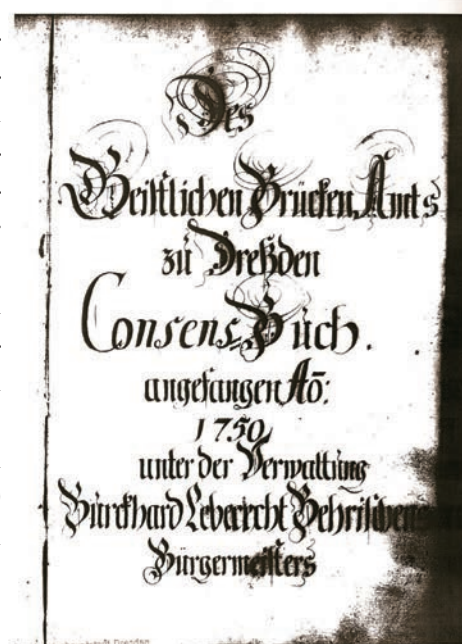 Des
Geistlichen Brücken Amts
zu Dreßden
Consens Buch.
angefangen Aō:
1750
unter der Verwaltung
Burckhard Leberecht Behrischens
Bürgermeisters